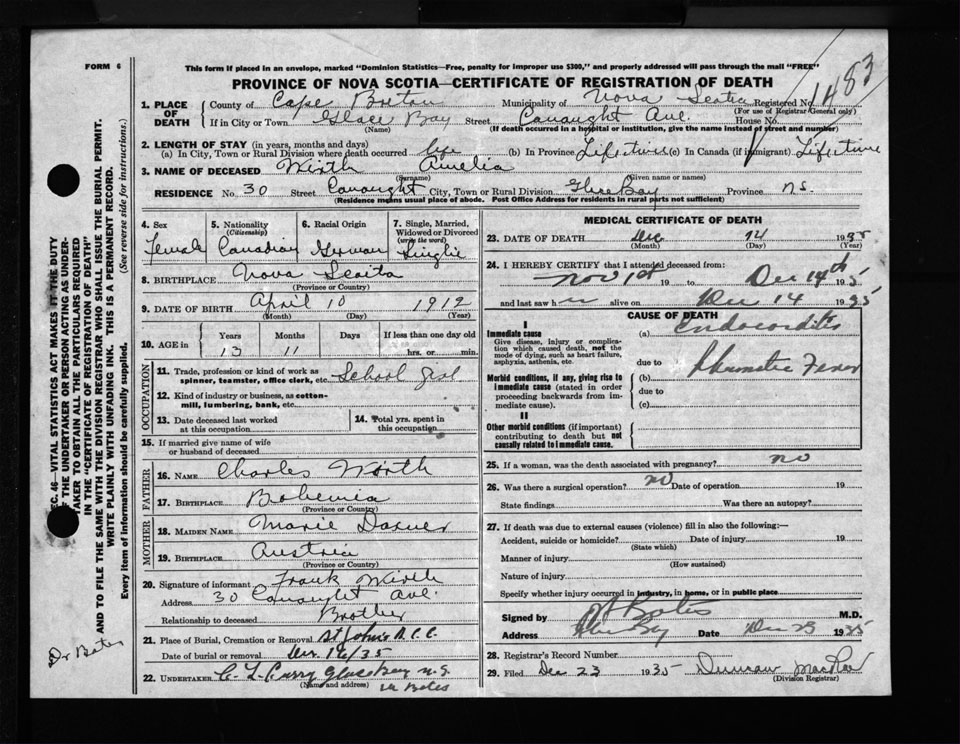 FORM 6
This form if placed in an envelope, marked "Dominion Statistics—Free, penalty for improper use $300," and properly addressed will pass through the mail "FREE"
PROVINCE OF NOVA SCOTIA—CERTIFICATE OF REGISTRATION OF DEATH
1483
1. PLACE OF DEATH
County of Cape Breton Municipality of Nova Scotia Registered No.
(For use of Registrar General only)
If in City or Town Glace Bay Street Canaught Ave. House No.
(Name) (If death occurred in a hospital or institution, give the name instead of street and number)
2. LENGTH OF STAY (in years, months and days)
(a) In City, Town or Rural Division where death occurred life (b) In Province Lifetime (c) In Canada (if immigrant) Lifetime
3. NAME OF DECEASED Wirth Amelia
(Surname) (Given name or names)
RESIDENCE No. 30 Street Canaught City, Town or Rural Division Glace Bay Province N.S.
(Residence means usual place of abode. Post Office Address for residents in rural parts not sufficient)
4. Sex
Female
5. Nationality
(Citizenship)
Canadian
6. Racial Origin
German
7. Single, Married, Widowed or Divorced
(write the word)
Single
8. BIRTHPLACE Nova Scoita
(Province or Country)
9. DATE OF BIRTH April 10 1912
(Month) (Day) (Year)
10. AGE in
Years
13
Months
11
Days
If less than one day old
hrs. or min.
OCCUPATION
11. Trade, profession or kind of work as spinner, teamster, office clerk, etc. School Girl
12. Kind of industry or business, as cotton-mill, lumbering, bank, etc.
13. Date deceased last worked at this occupation
14. Total yrs. spent in this occupation
15. If married give name of wife or husband of deceased
FATHER
16. NAME Charles Wirth
17. BIRTHPLACE Bohemia
(Province or Country)
MOTHER
18. MAIDEN NAME Marie
19. BIRTHPLACE Austria
(Province or Country)
20. Signature of informant Frank Wirth
Address 30 Canaught Ave.
Relationship to deceased Brother
21. Place of Burial, Cremation or Removal St John's
Date of burial or removal Dec. 16/35
22. UNDERTAKER C. L. Curry Glace Bay N.S.
(Name and address)
Dr Bates
MEDICAL CERTIFICATE OF DEATH
23. DATE OF DEATH Dec 14 1935
(Month) (Day) (Year)
24. I HEREBY CERTIFY that I attended deceased from:
Nov 1st 19 to Dec 14th 1935
and last saw her alive on Dec 14 1935
CAUSE OF DEATH
I
Immediate cause
Give disease, injury or complication which caused death, not the mode of dying, such as heart failure, asphyxia, asthenia, etc.
(a) Endocarditis
due to
Morbid conditions, if any, giving rise to immediate cause (stated in order proceeding backwards from immediate cause).
(b) Rhumatic Fever
due to
(c)
II
Other morbid conditions (if important) contributing to death but not causally related to immediate cause.
25. If a woman, was the death associated with pregnancy? no
26. Was there a surgical operation? no Date of operation 19
State findings Was there an autopsy?
27. If death was due to external causes (violence) fill in also the following:—
Accident, suicide or homicide? Date of injury 19
(State which)
Manner of injury
(How sustained)
Nature of injury
Specify whether injury occurred in industry, in home, or in public place
Signed by Bates M.D.
Address Glace Bay Date Dec 23 1935
28. Registrar's Record Number
29. Filed Dec 23 1935 Duncan
(Division Registrar)
SEC. 46—VITAL STATISTICS ACT MAKES IT THE DUTY
OF THE UNDERTAKER OR PERSON ACTING AS UNDER-
TAKER TO OBTAIN ALL THE PARTICULARS REQUIRED
IN THE "CERTIFICATE OF REGISTRATION OF DEATH"
AND TO FILE THE SAME WITH THE DIVISION REGISTRAR WHO SHALL ISSUE THE BURIAL PERMIT.
WRITE PLAINLY WITH UNFADING INK. THIS IS A PERMANENT RECORD.
Every item of information should be carefully supplied. (See reverse side for instructions.)
Dr Bates